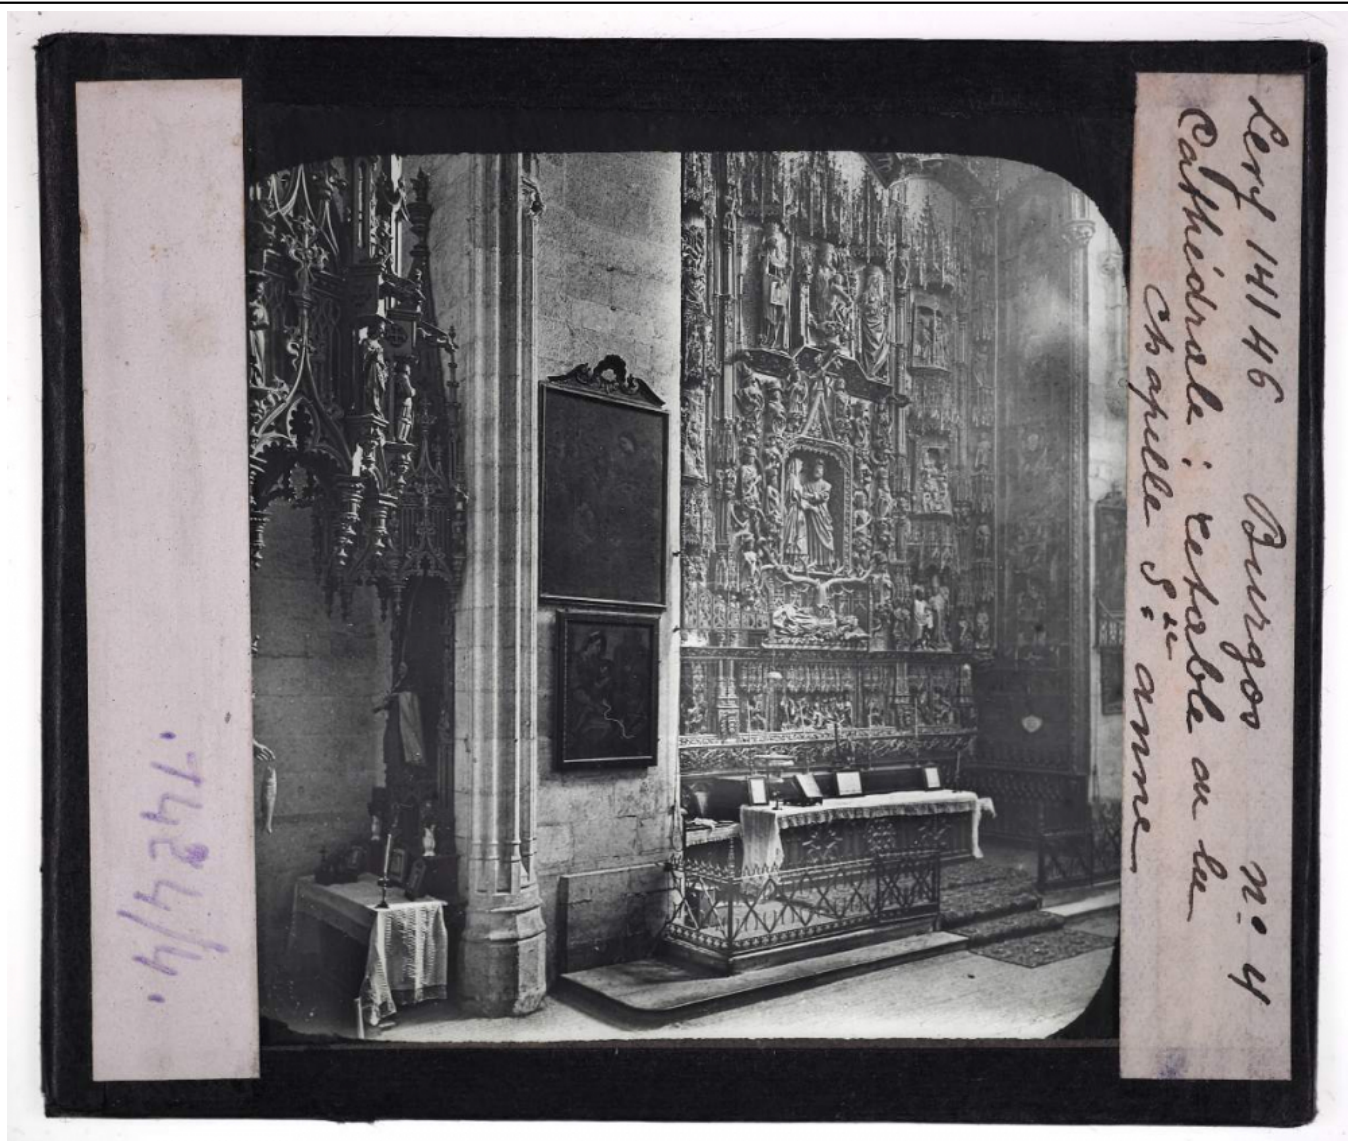 14146 Burgos nº 4
Cathédrale : retable de la
chapelle Ste anne